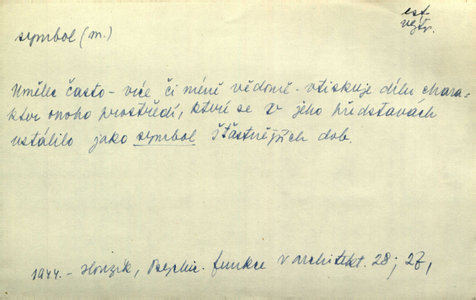 est
symbol (m.)
Umělec často - více či méně vědomě - vtiskuje dílu chara-
ktor onoho prostředí, které se v jeho představách
ustálilo jako symbol šťastnějších dob.
1944. - Honzík, Psychic. funkce v architekt. 28; 27,